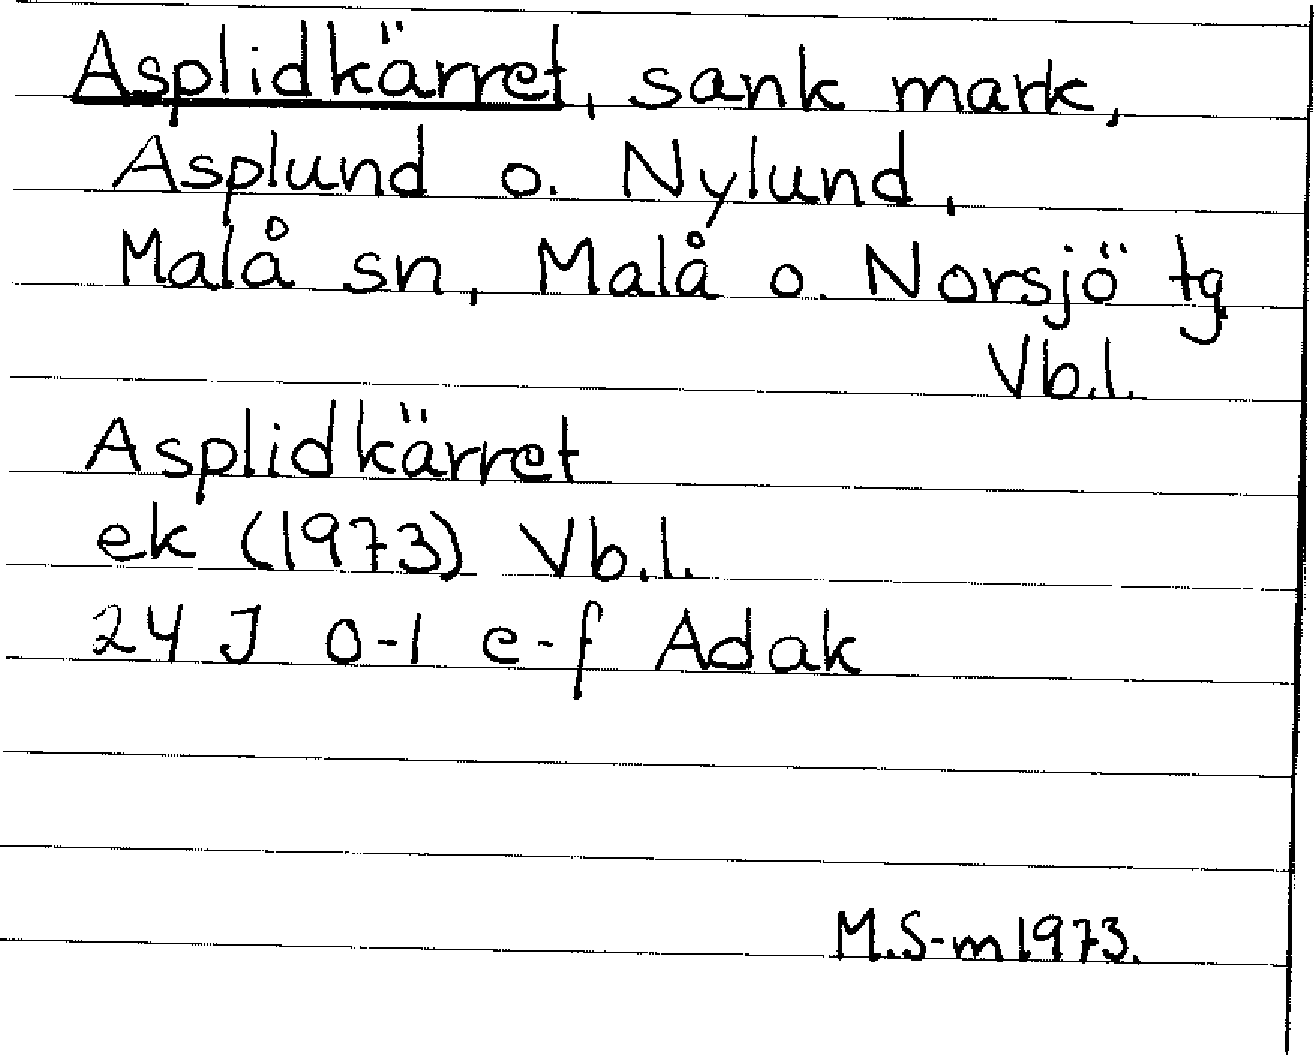 Asplidkärret, sank mark,
Asplund o. Nylund,
Malå sn, Malå o. Norsjö tg
Vb.l.
Asplidkärret
ek (1973) Vb.l.
24 J 0-1 e-f Adak
M.S-m 1973.